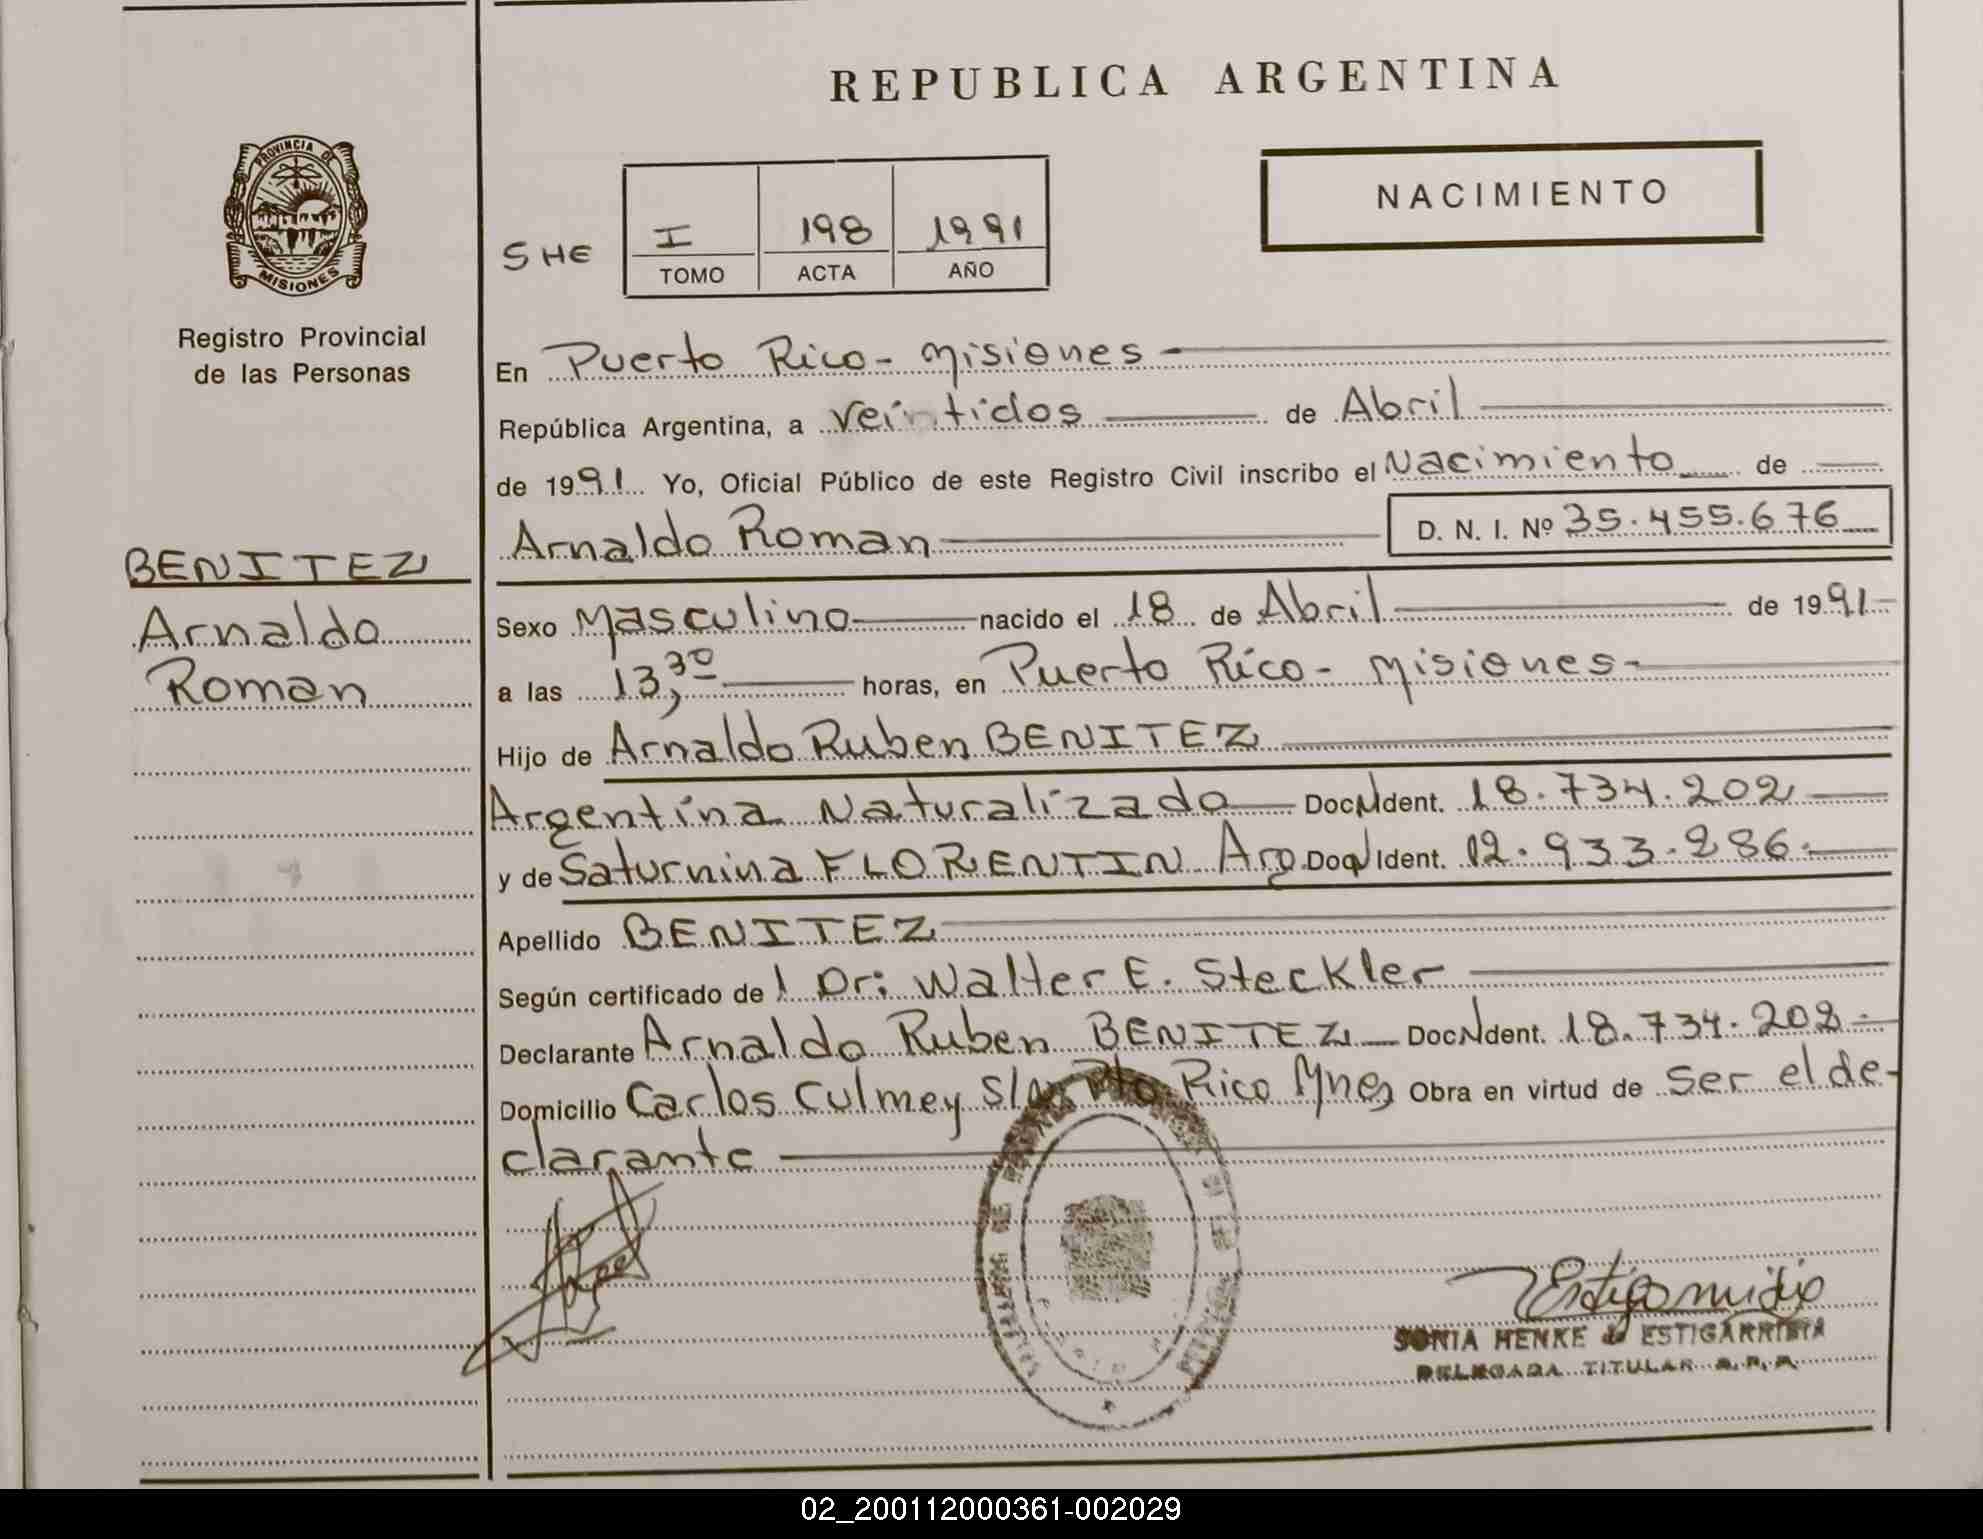 REPUBLICA ARGENTINA
PROVINCIA DE
MISIONES
Registro Provincial
de las Personas
NACIMIENTO
SHE
I 198 1991
TOMO ACTA AÑO
En Puerto Rico - Misiones
República Argentina, a veintidos de Abril
de 1991 Yo, Oficial Público de este Registro Civil inscribo el Nacimiento de
Arnaldo Roman D. N. I. Nº 35.455.676
BENITEZ
Arnaldo
Roman
Sexo Masculino nacido el 18 de Abril de 1991
a las 13,30 horas, en Puerto Rico - Misiones -
Hijo de Arnaldo Ruben BENITEZ
Argentina Naturalizado Doc. Ident. 18.734.202
y de Saturnina FLORENTIN Arg. Doc. Ident. 12.933.286.
Apellido BENITEZ
Según certificado del Dr: Walter E. Steckler
Declarante Arnaldo Ruben BENITEZ Doc. Ident. 18.734.202
Domicilio Carlos Culmey S/ Pto Rico Mnes Obra en virtud de ser el de-
clarante
SONIA HENKE de ESTIGARRIBIA
DELEGADA TITULAR R.P.P.
02_200112000361-002029